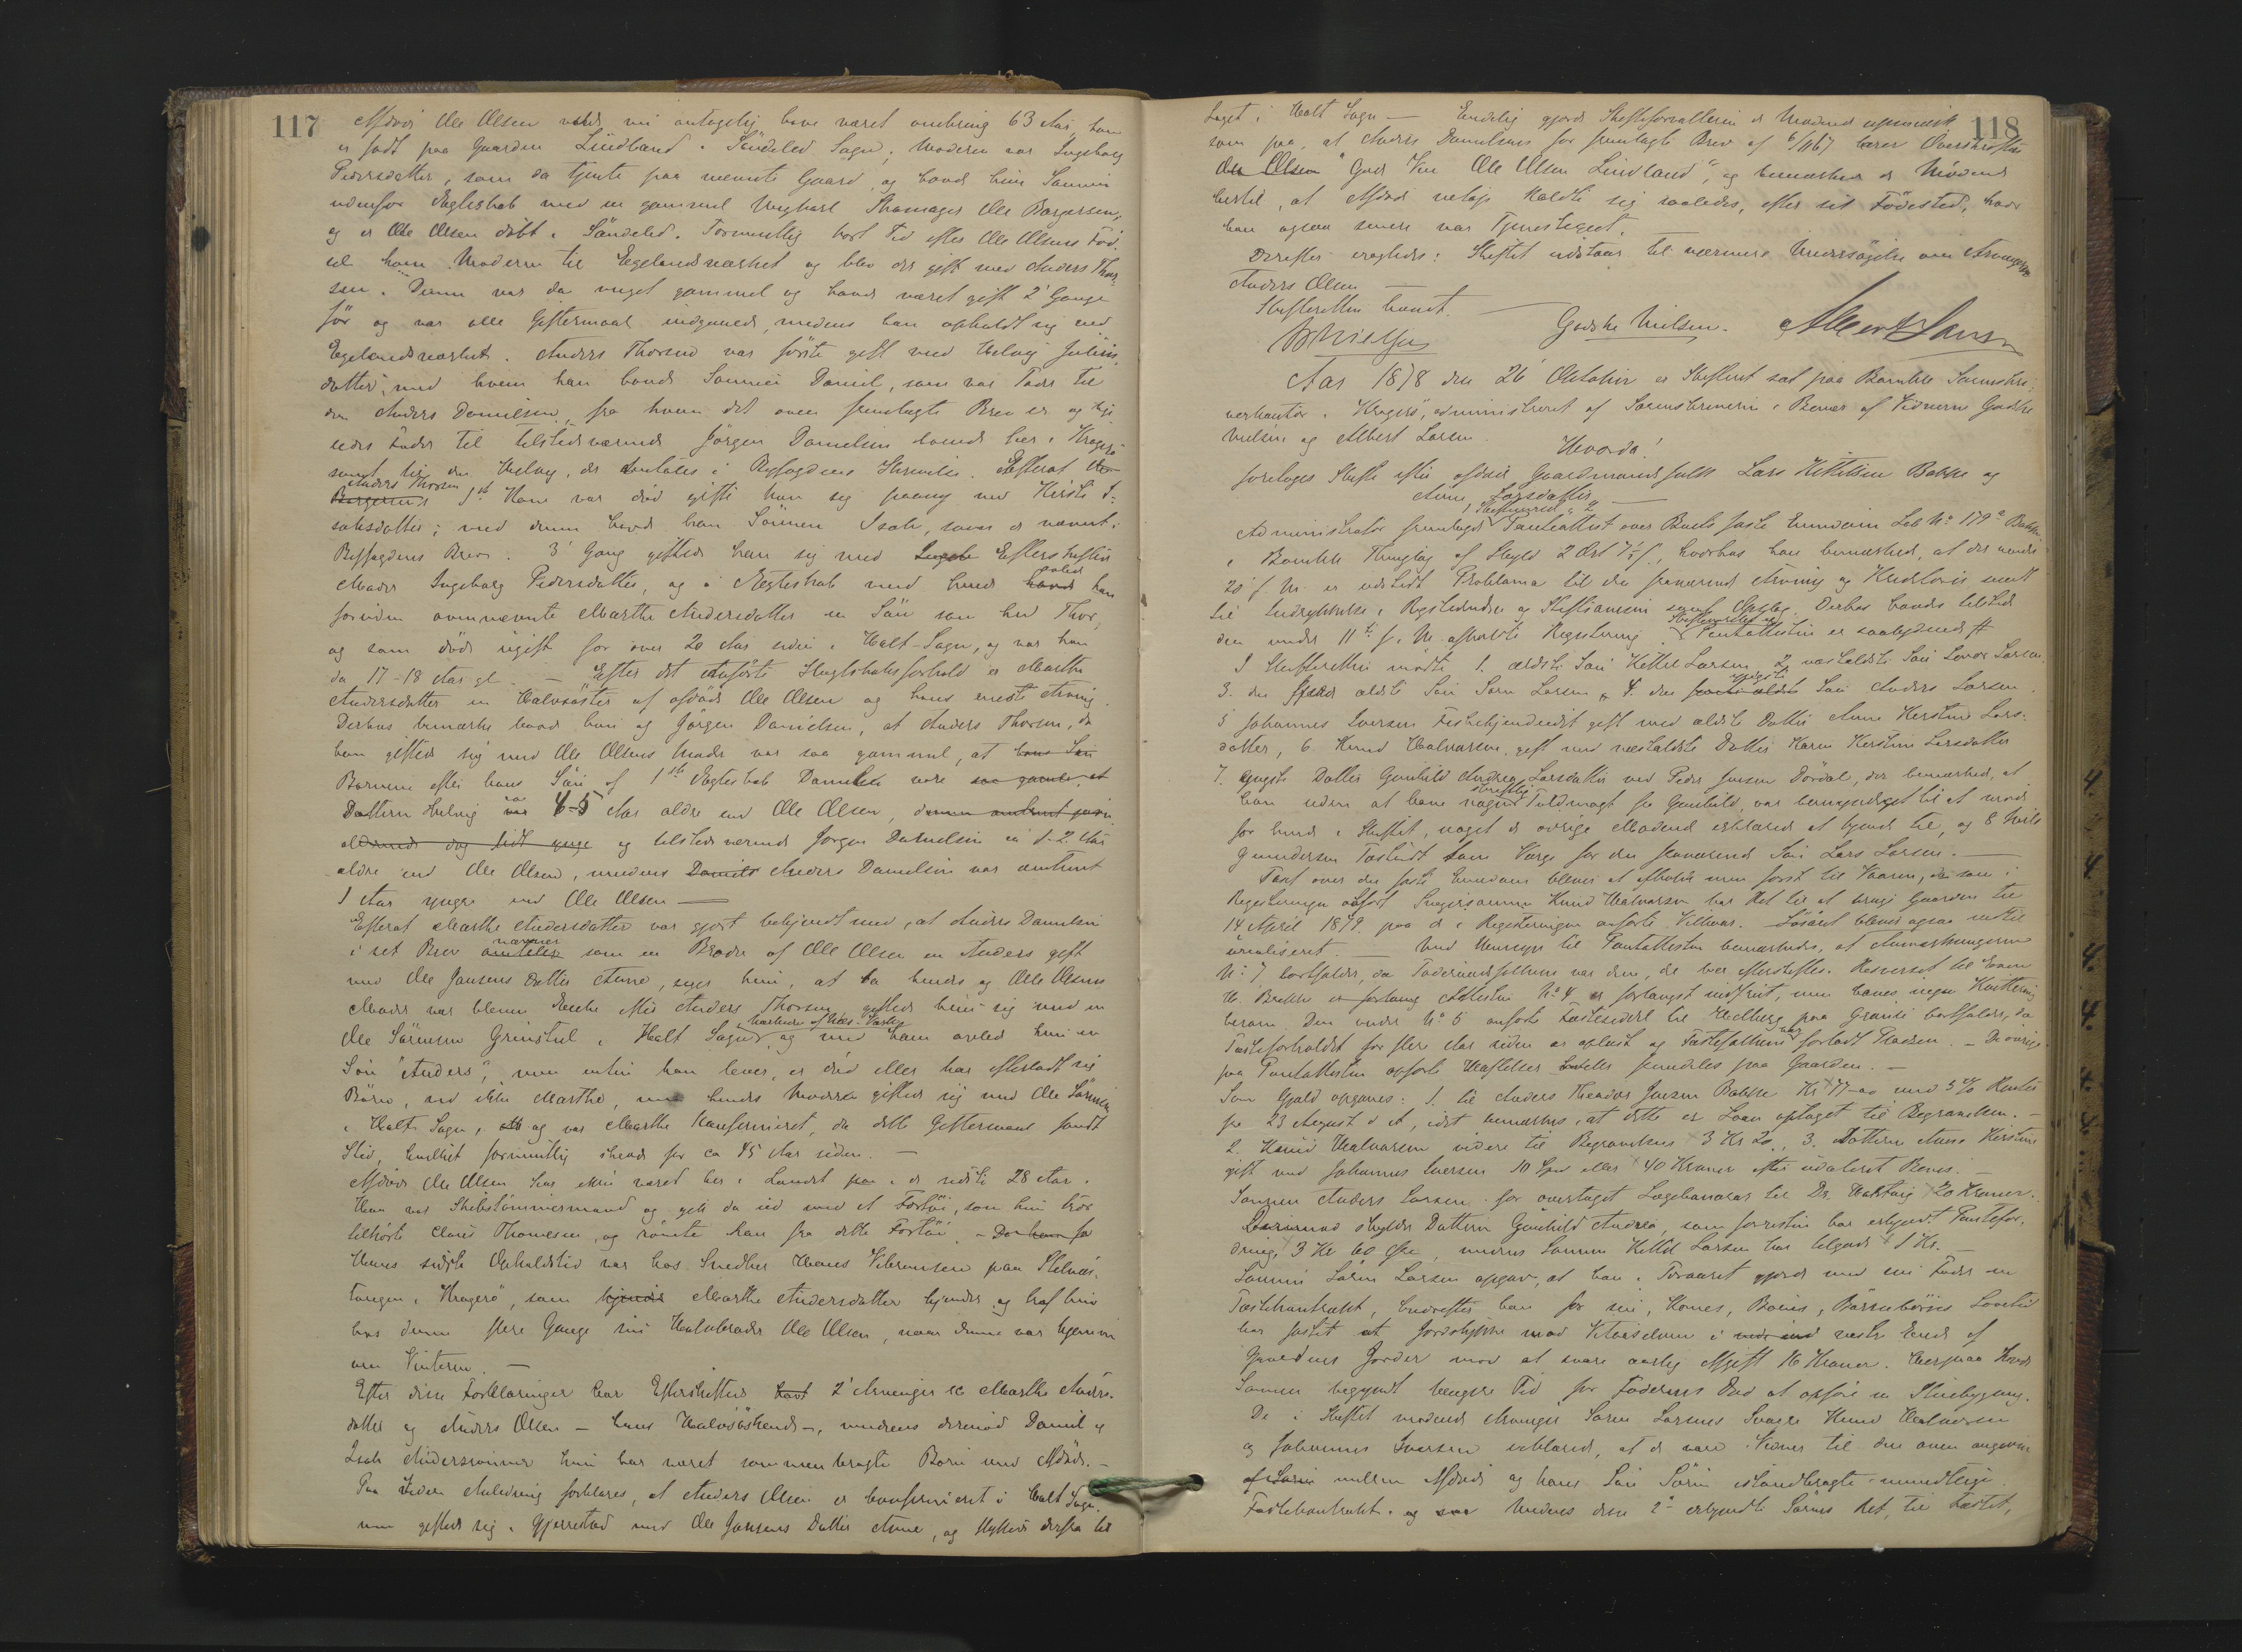 117
Afdøde Ole Olsen vilde nu antagelig have været omkring 63 Aar, han
er født paa Gaarden Lindland i Søndeled Sogn; Moderen var Ingeborg
Pedersdatter, som da tjente paa nævnte Gaard, og havde hun Sønnen
udenfor Ægteskab med en gammel Ungkarl Skomager Ole Borgersen,
og er Ole Olsen døbt i Søndeled. Formentlig kort Tid efter Ole Olsens Fød-
sel kom Moderen til Egelandsværket og blev der gift med Anders Thor-
sen. Denne var da meget gammel og havde været gift 2 Gange
før og var alle Giftermaal indgaaede, medens han opholdt sig ved
Egelandsværket. Anders Thorsen var først gift med Helvig
datter, med hvem han havde Sønnen Daniel, som var Fader til
den Anders Danielsen, fra hvem det oven fremlagte Brev er og
Fader til tilstedeværende Jørgen Danielsen boende her i Kragerø
samt til den Helvig, der omtales i Skrivelse. Efterat
Anders Thorsens 1ste Kone var død gifte han sig paany med Kirsti I-
saksdatter; med denne havde han Sønnen Isak, som er nævnt i
Brev. 3 Gang giftede han sig med Efterskiftets
Moder Ingeborg Pedersdatter, og i Ægteskab med hende avlede han
foruden ovennævnte Marthe Andersdatter en Søn som hed Thor,
og som døde ugift for over 20 Aar siden i Holt Sogn, og var han
da 17-18 Aar gl. Efter det anførte Slægtskabsforhold er Marthe
Andersdatter en Halvsøster af afdøde Ole Olsen og hans eneste Arving.
Derhos bemærke baade hun og Jørgen Danielsen, at Anders Thorsen, da
han giftede sig med Ole Olsens Moder var saa gammel, at hans Søn
Børnene efter hans Søn af 1ste Ægteskab Daniel vare saa gamle, at
Datteren Helvig var 4-5 Aar ældre end Ole Olsen,
og tilstedeværende Jørgen Danielsen ca 1-2 Aar
ældre end Ole Olsen, medens Daniels Anders Danielsen var omtrent
1 Aar yngre end Ole Olsen
Efterat Marthe Andersdatter var gjort bekjendt med, at Anders Danielsen
i sit Brev omtaler nævner som en Broder af Ole Olsen en Anders gift
med Ole Jansens Datter Anne, siger hun, at da hendes og Ole Olsens
Moder var bleven Enke efter Anders Thorsen giftede hun sig med en
Ole Sørensen Grinstul i Holt Sogn, og med ham avlede hun en
Søn "Anders", men enten han lever, er død eller har efterladt sig
Børn, ved ikke Marthe, men hendes Moder giftede sig med Ole Sørensen
i Holt Sogn, og var Marthe Konfirmeret, da dette Giftermaal fandt
Sted, hvilket formentlig skede for ca 45 Aar siden. —
Afdøde Ole Olsen har ikke været her i Landet paa i de sidste 28 Aar.
Han var Skibstømmermand og gik da ud med et Fartøi, som hun tror
tilhørte Claus Thomesen, og rømte han fra dette Fartøi. —
Hans sidste Opholdstid var hos Snedker Hans Vibransen paa Stilnæs-
tangen i Kragerø, som kjendte Marthe Andersdatter kjender og traf hun
hos denne flere Gange sin Halvbroder Ole Olsen, naar denne var hjemme
om Vinteren. —
Efter disse Forklaringer har Efterskiftets havt 2 Arvinger sc Marthe Anders-
datter og Anders Olsen — hans Halvsøskende —, medens derimod Daniel og
Isak Anderssønner kun har været sammenbragte Børn med Afdøde. —
Paa Anledning forklares, at Anders Olsen er konfirmeret i Holt Sogn
men giftede sig i Gjerrestad med Ole Jansens Datter Anne, og flyttede derfra til
118
baget i Holt Sogn — Endelig gjorde Skifteforvalteren de Mødende opmærk-
som paa, at Anders Danielsens for fremlagte Brev af 6/11 67 bærer Overskriften
Ole Olsen "Gode Ven Ole Olsen Lindland", og bemærkede de Mødende
hertil, at Afdøde netop kaldte sig saaledes, efter sit Fødested, hvor
han ogsaa senere var Tjenestegut.
Derefter eragtedes: Skiftet udstaar til nærmere Undersøgelse om Arvingen
Anders Olsen
Skifteretten hævet.
Godske Nielsen. Albert Larsen
Aar 1878 den 26 Oktober er Skifteret sat paa Bamble Sorenskri-
verkontor i Kragerø, administreret af Sorenskriveren i Bevær af Vidnerne Godske
Nielsen og Albert Larsen.
Hvorda!
foretages Skifte efter afdøde Gaardmandsfolk Lars Kittilsen Bakke og
Anne Larsdatter
Administrator fremlagde Panteattest over Boets faste Eiendom Løb No 179a Bakke
i Bamble Thinglag af Skyld 2 Ort 7 ½ ß, hvorhos han bemærkede, at der under
20 f. M. er udstedt Proklama til den fraværende Arving og Kreditorer samt
til Indrykkelse i Rigstidende og samt Opslag. Derhos havdes tilstede
den under 11te f. M. afholdte Registrering. Panteattesten er saalydende #
I Skifteretten mødte 1. ældste Søn Kittel Larsen, 2. næstældste Søn Larsen
3. den ældste Søn Søren Larsen, 4. den yngste Søn Anders Larsen.
5 Johannes Iversen gift med ældste Datter Anne Kirstine Lars-
datter, 6. Knud Halvorsen, gift med næstældste Datter Karen Kirstine Larsdatter
7. yngste Datter Gunhild Andrea Larsdatter ved Peder Jensen Dørdal, der bemærkede, at
han uden at have nogen skriftlig Fuldmagt fra Gunhild, var bemyndiget til at møde
for hende i Skiftet, noget de øvrige Mødende erklærede at kjende til, og 8
Gundersen som Værge for den fraværende Søn Lars Larsen. —
Taxt over den faste Eiendom bliver at afholde men først til Vaaren, da som i
Registreringen anført Svigersønnen Knud Halvorsen har Ret til at bruge Gaarden til
14 April 1879. paa de i Registreringen anførte Vilkaar. Løsøret bliver ogsaa indtil
urealiseret. — Med Hensyn til Panteattesten bemærkedes, at Anmærkningerne
No 7 bortfalder, da
H. Bakke Attesten No 4 er forlængst indfriet, men haves ingen Kvittering
herom. Den under No 5 anførte Fæsteseddel til paa bortfalder, da
Fæsteforholdet for flere Aar siden er opløst og Fæstefolkene har forladt Pladsen. — De øvrige
paa Panteattesten opførte Hæftelser fremdeles paa Gaarden. —
Som Gjæld opgaves: 1. til Anders Theodor Jensen Bakke Kr 77-00 med 5 % Renter
fra 23 August d A, idet bemærkes, at dette er Laan optaget til Begravelsen. —
2. Knud Halvorsen videre til Begravelsen 3 Kr 20, 3. Datteren Anne Kirstine
gift med Johannes Iversen 10 Spd eller 40 Kroner efter udateret Bevis. —
Sønnen Anders Larsen for overtaget Lægehonorar til Dr. 20 Kroner.
Derimod skylder Datteren Gunhild Andrea, som forresten har erkjendt Pantefor-
dring, 3 Kr 60 Øre, medens Sønnen Kittel Larsen har tilgode 1 Kr. —
Sønnen Søren Larsen opgav, at han i Foraaret gjorde med sin Fader en
Fæstekontrakt, hvorefter han for sin, Kones, Børns, Børnebørns Levetid
har fæstet et Jordstykke mod i vestre Ende af
Gaardens Jorder mod at svare aarlig Afgift 16 Kroner. Herpaa havde
Sønnen begyndt længere Tid før Faderens Død at opføre en Stuebygning.
De i Skiftet mødende Arvinger Søren Larsens Svogre Knud Halvorsen
og Johannes Iversen erklærede, at de vare Vidner til den oven angivne
mellem Afdøde og hans Søn Søren istandbragte mundtlige
Fæstekontrakt. og disse 2 erkjendte Sørens Ret til Fæstet,